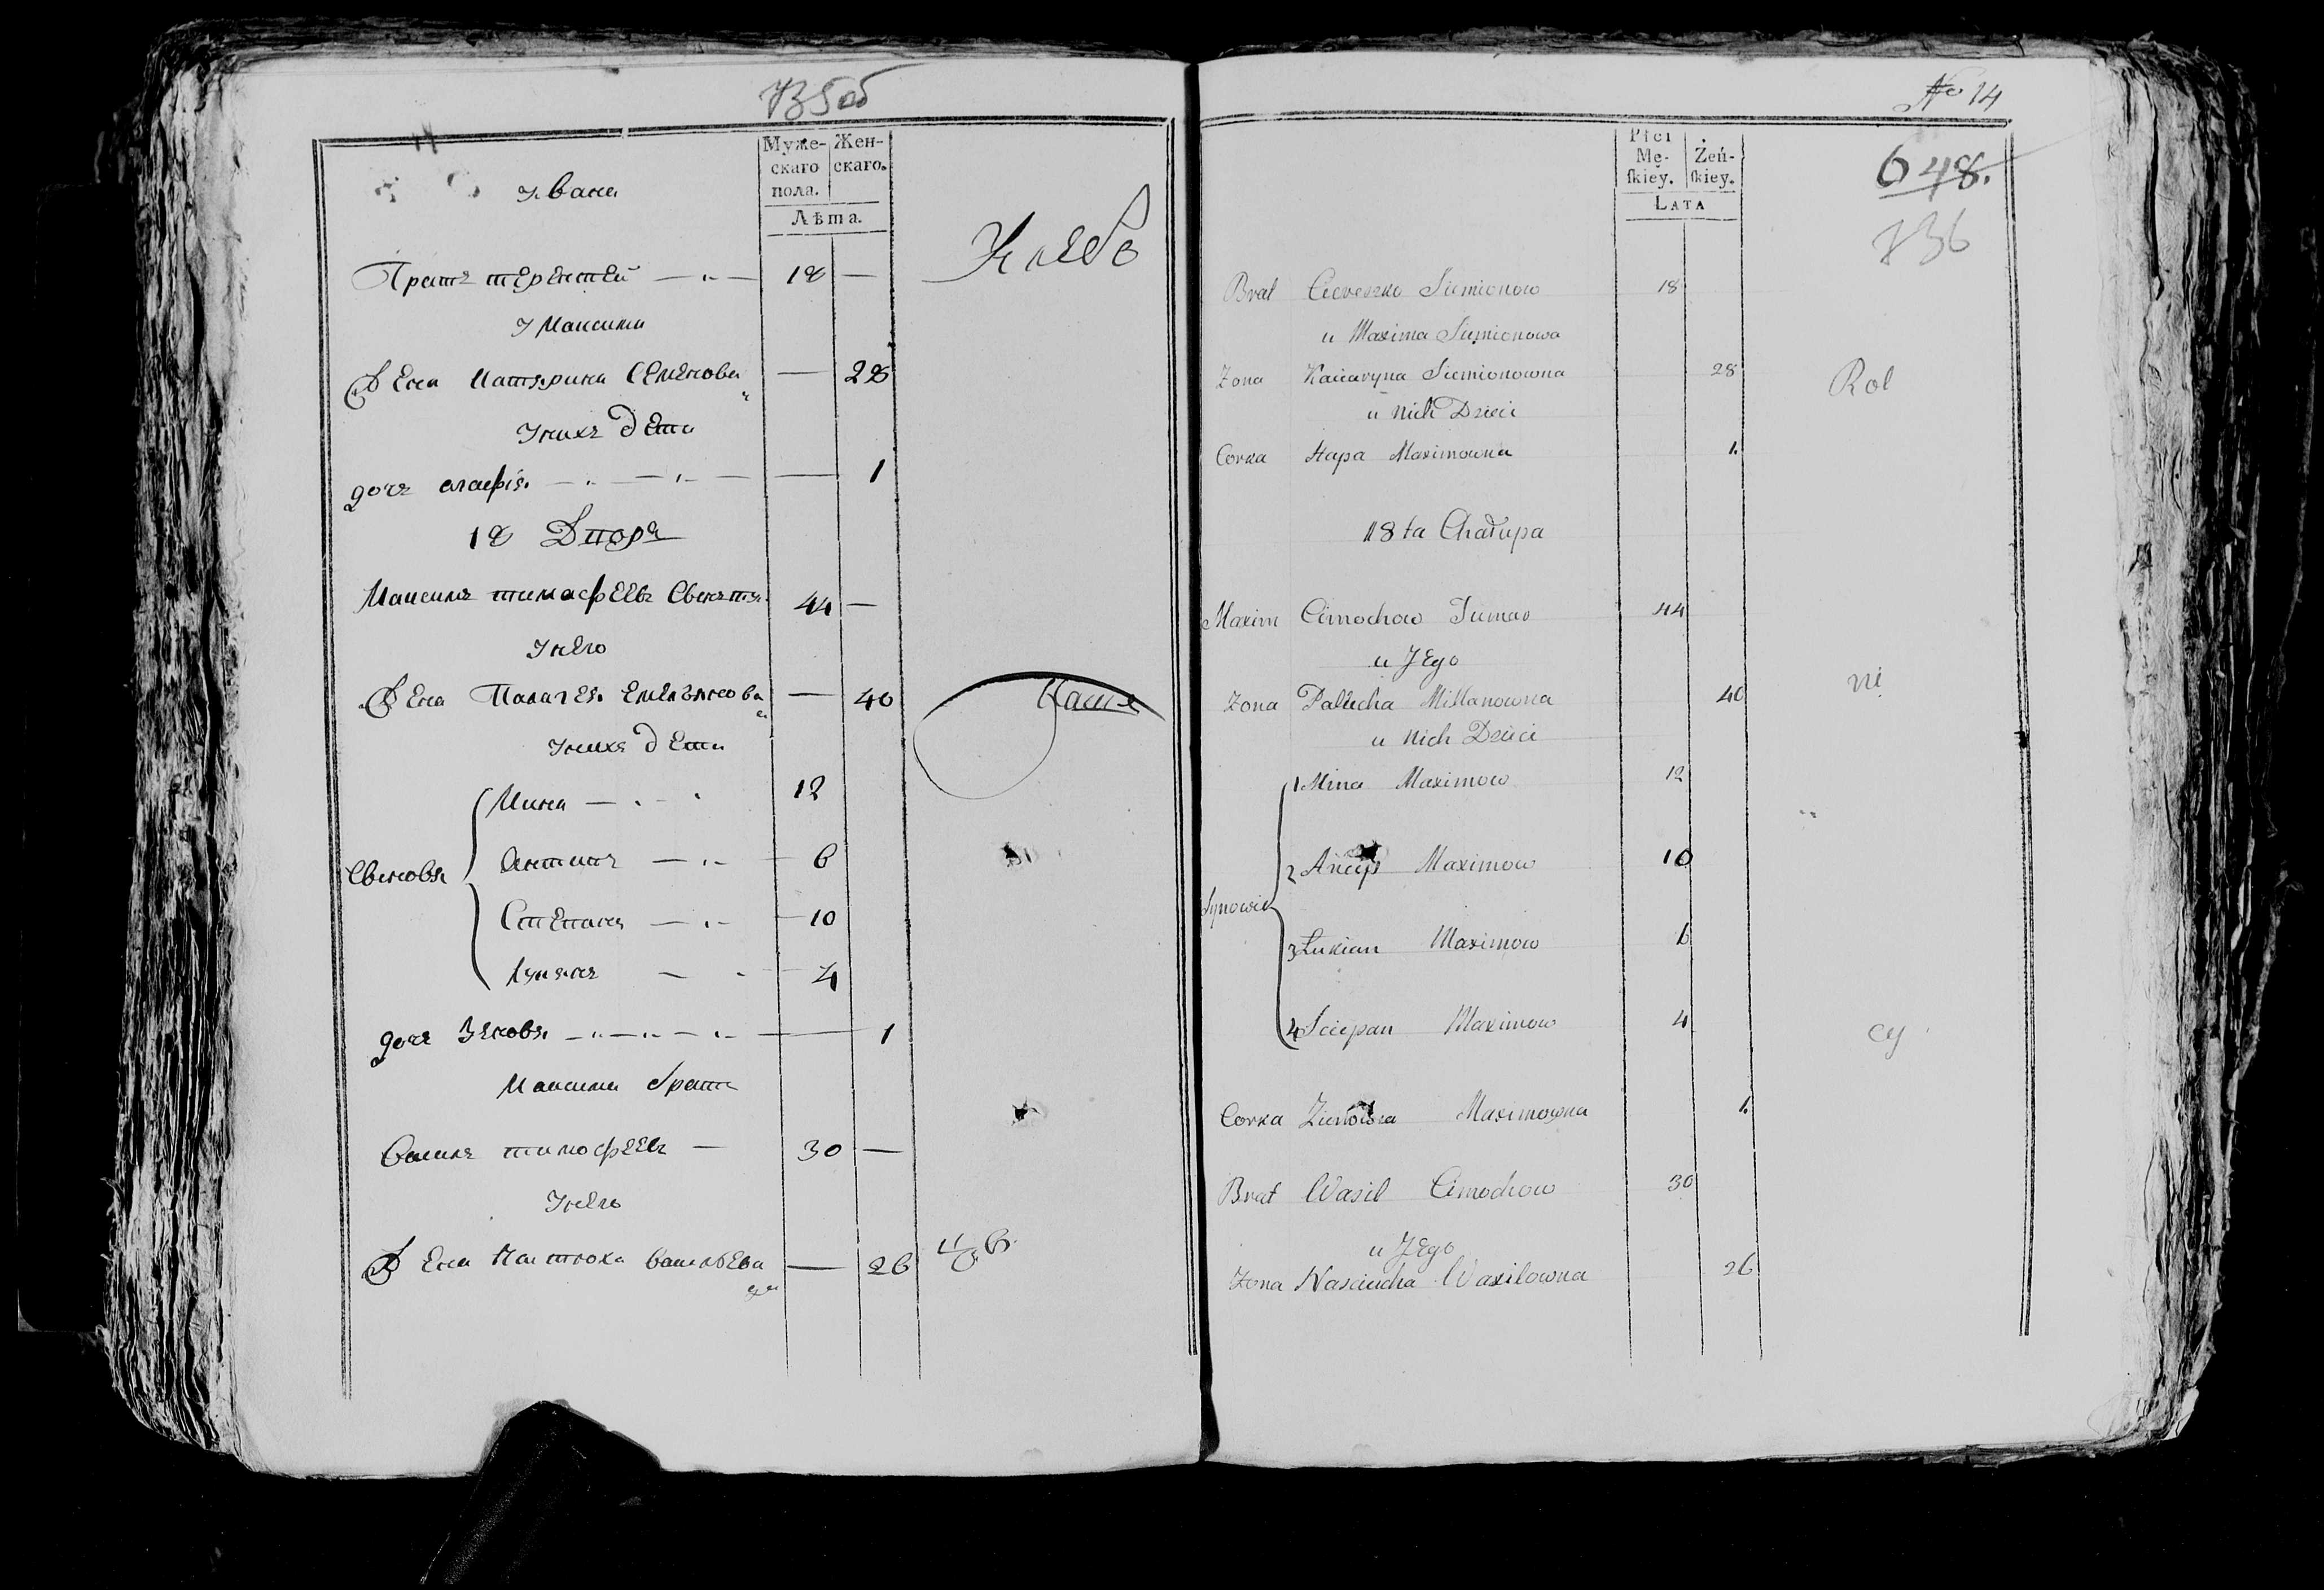 735 об
Муже-
скаго
пола.
Жен-
скаго.
Лѣта.
Ивана
18 —
Хлебо
И Максима
Жена Катярина Семенова — 28
У них дети
доч Агафія — 1
18 Двора
Максим Тимофеев 44 —
У него
Жена Палагея Емельянова — 40
Паше
У них дети
Мина — 12
Антип — 6
Степан — 10
Лукян — 4
доч Зеновя — 1
Максима брат
Василь Тимофеев — 30 —
У него
Жена Настюха Васильева — 26
цы
№ 14
Płci
Mę-
ſkiey.
Żeń-
ſkiey.
LATA
648.
736
Brat Ciereszko Siemionow 18
u Maxima Siemionowa
Zona Kaciaryna Siemionowna 28
Rol
u Nich Dzieci
Corka Hapa Maximowna 1.
18ta Chałupa
Maxim Cimochow 44
u Jego
Zona Palucha 40
ni
u Nich Dzieci
Synowie
1 Mina Maximow 12
2 Ancip Maximow 10
3 Łukian Maximow 6
4 Sciepan Maximow 4
cy
Corka Zienowia Maximowna 1.
Brat Wasil Cimochow 30
u Jego
Zona Nasciucha Wasilowna 26